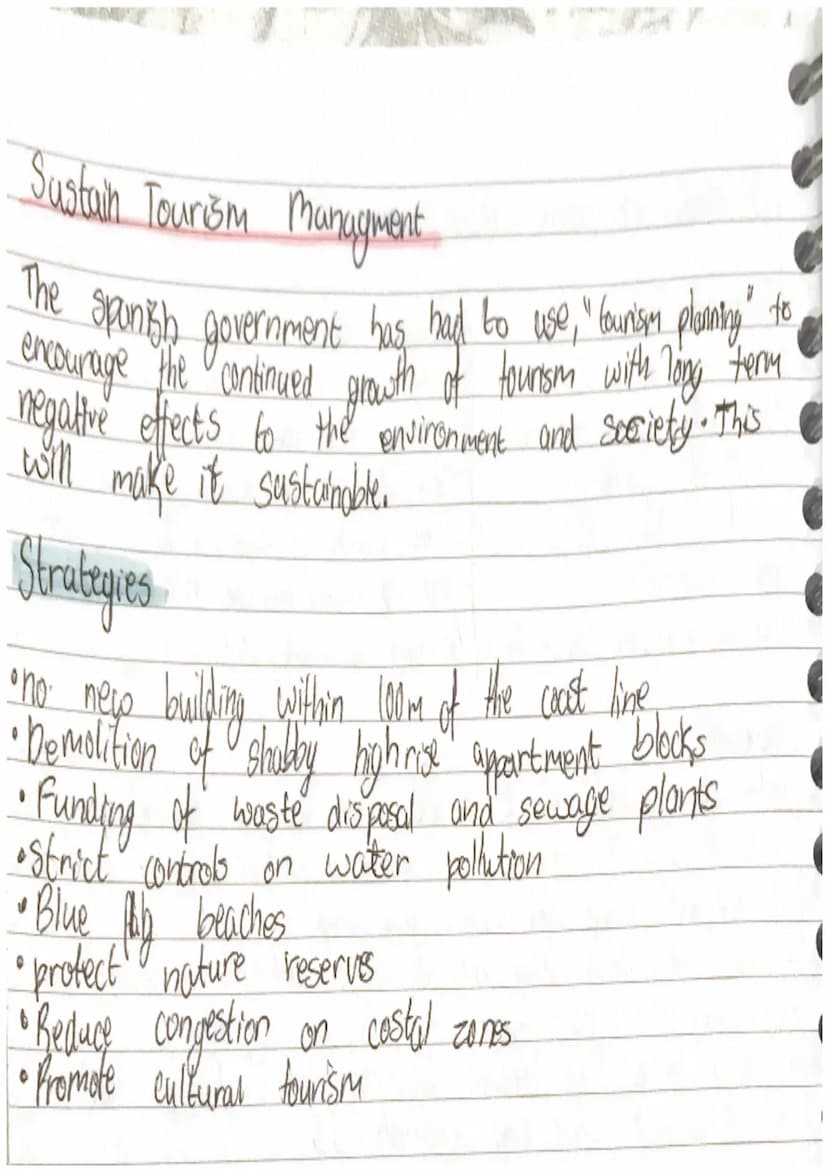 Sustain Tourism Managment
The spanish government has had to use, "tourism planning" to
encourage the continued growth of tourism with long term
negative effects to the environment and society. This
will make it sustainable.
Strategies
• no new building within 100m of the coast line
• Demolition of shabby highrise appartment blocks
• Funding of waste disposal and sewage plants
• Strict controls on water pollution
• Blue flag beaches
• protect nature reserves
• Reduce congestion on costal zones
• Promote cultural tourism